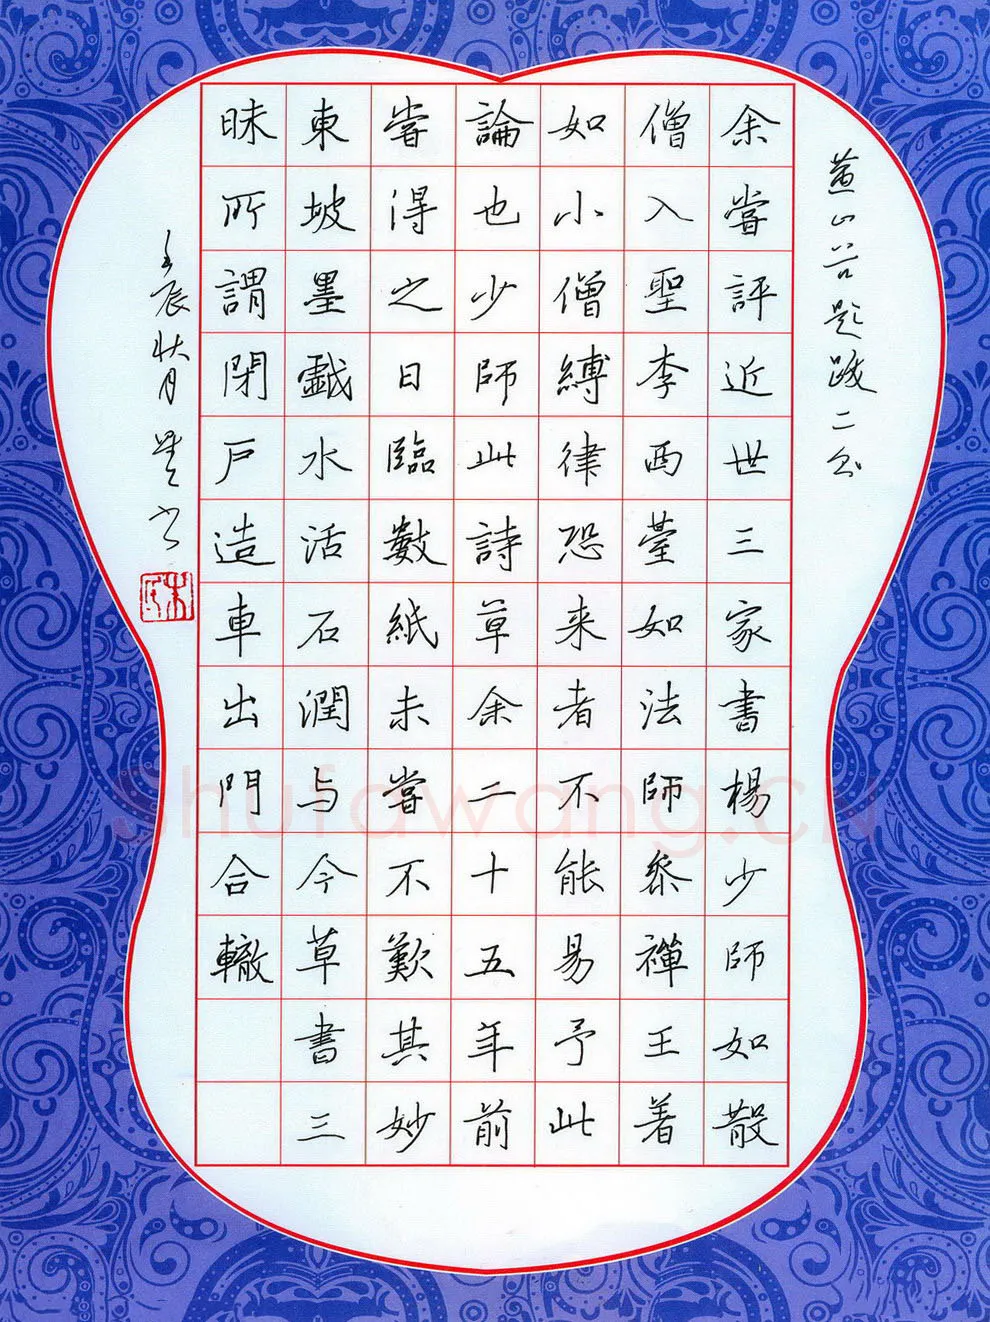 黄山谷題跋二則
余嘗評近世三家書楊少師如散
僧入聖李西臺如法師參禪王著
如小僧縛律恐來者不能易予此
論也少師此詩草余二十五年前
嘗得之日臨數紙未嘗不歎其妙
東坡墨戲水活石潤与今草書三
昧所謂閉戸造車出門合轍
壬辰
書
Shufawang.CN